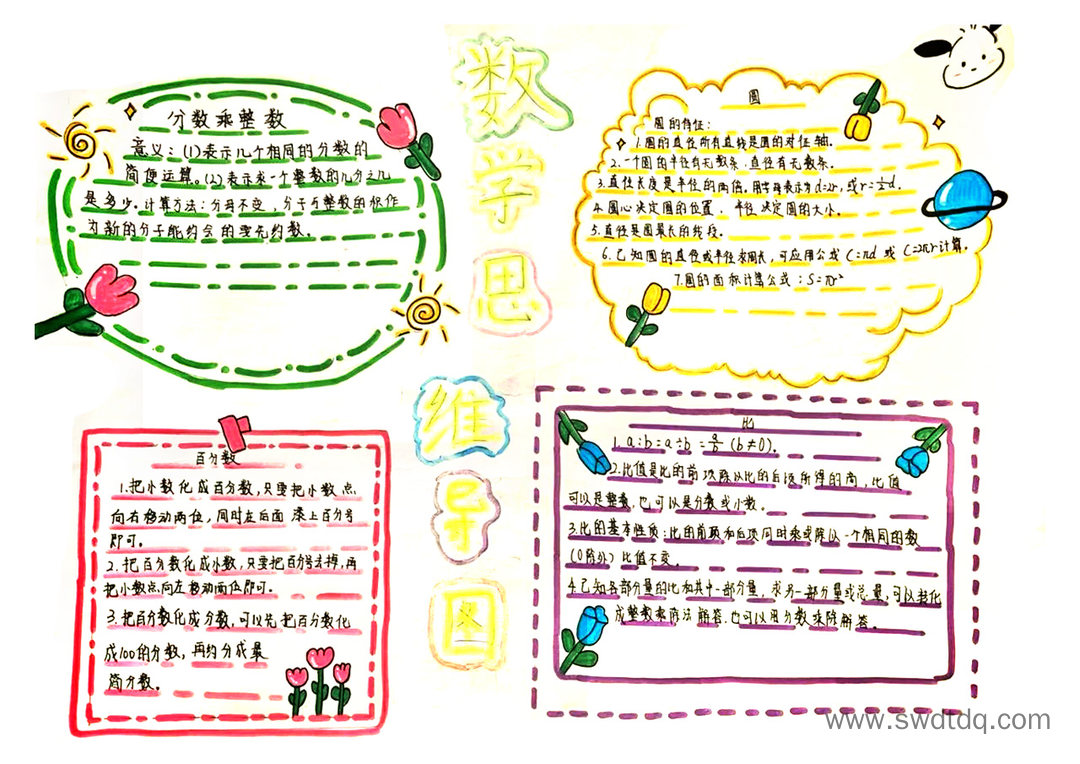 数学思
维导图
分数乘整数
意义：(1)表示几个相同的分数的
简便运算。(2)表示求一个整数的几分之几
是多少。计算方法：分母不变，分子与整数的积作
为新的分子能约分的要先约数。
圆
圆的特征：
1.圆的直径所有直线是圆的对称轴。
2.一个圆的半径有无数条.直径有无数条。
3.直径长度是半径的两倍。用字母表示为d=2r，或r=½d.
4.圆心决定圆的位置．半径决定圆的大小。
5.直径是圆最长的线段。
6.已知圆的直径或半径求周长，可应用公式 C=πd 或 C=2πr计算。
7.圆的面积计算公式：S=πr²
百分数
1.把小数化成百分数，只要把小数点
向右移动两位，同时在后面添上百分号
即可。
2.把百分数化成小数，只要把百分号去掉，再
把小数点向左移动两位即可．
3.把百分数化成分数，可以先把百分数化
成100的分数，再约分成最
简分数。
比
1. a:b=a÷b=a/b (b≠0).
2.比值是比的前项除以比的后项所得的商，比值
可以是整数，也可以是分数或小数。
3.比的基本性质：比的前项和后项同时乘或除以一个相同的数
(0除外) 比值不变。
4.已知各部分量的比和其中一部分量，求另一部分量或总量，可以转化
成整数乘除法解答．也可以用分数乘除解答。
www.swdtdq.com